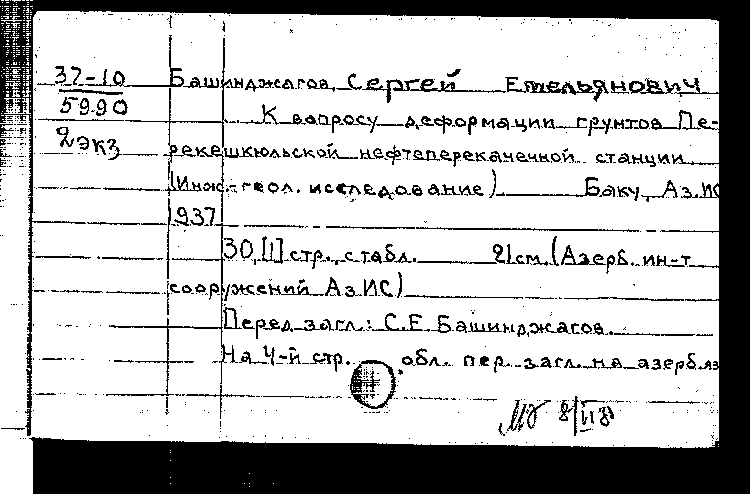 37-10
5990
2 экз
Башинджагов, Сергей Емельянович
К вопросу деформации грунтов Пе-
рекешкюльской нефтеперекачечной станции
(Инж.-геол. исследование) Баку, Аз.ИС
1937
30,[1] стр., с табл. 21 см. (Азерб. ин-т
сооружений АзИС)
Перед загл.: С.Е. Башинджагов.
На 4-й стр. обл. пер. загл. на азерб. яз